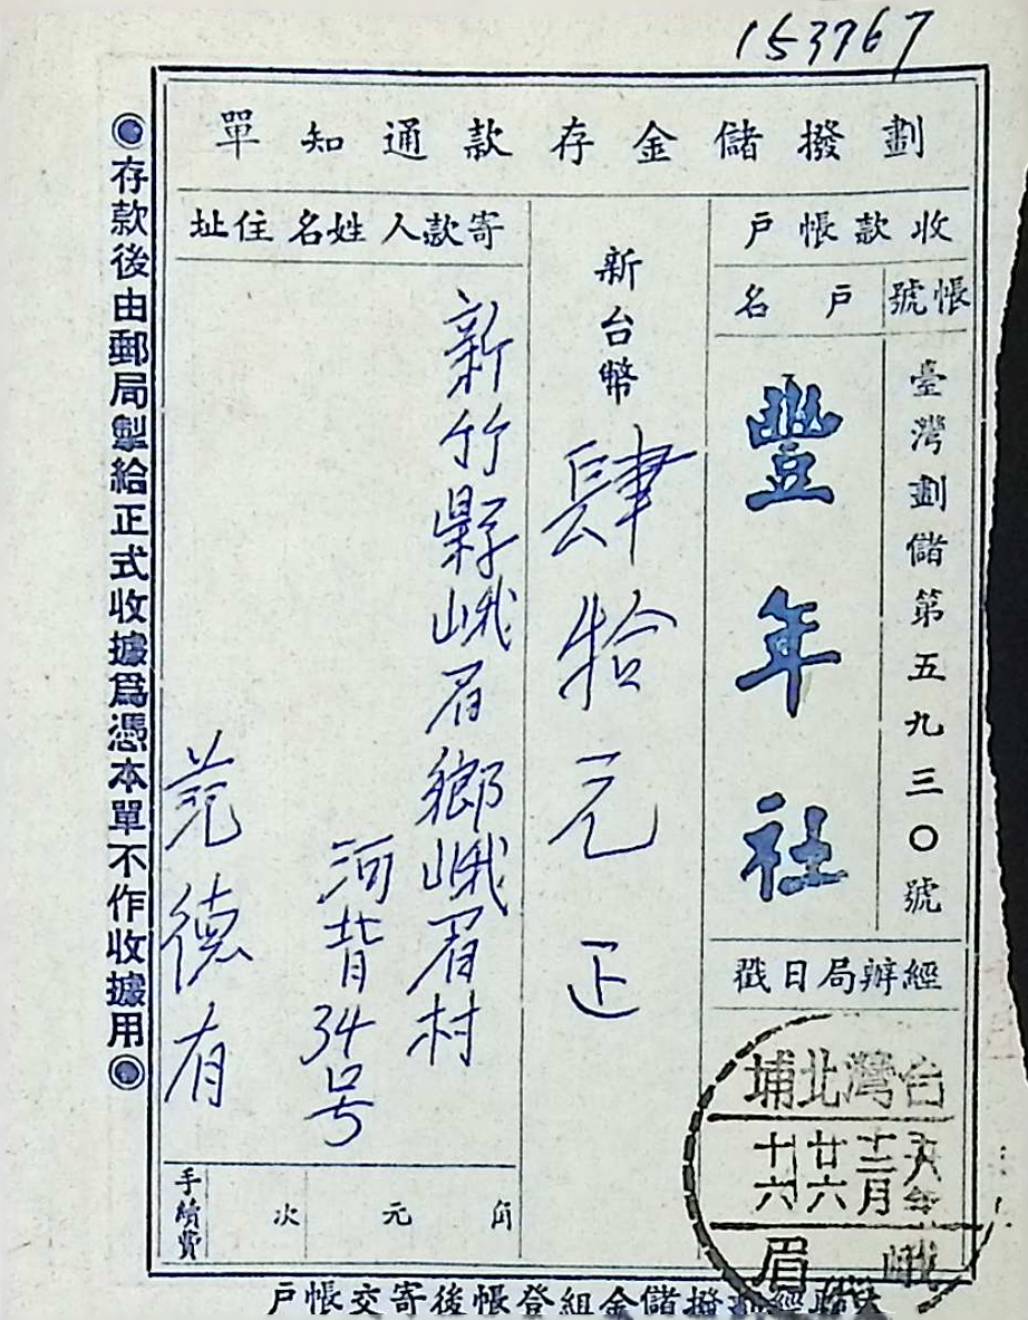 153767
劃撥儲金存款通知單
收款帳戶
帳號
臺灣劃儲第五九三〇號
戶名
豐年社
經辦局日戳
台灣北埔
五八年
十二月
廿六
十六
峨眉
新台幣肆拾元正
寄款人姓名住址
新竹縣峨眉鄉峨眉村
河背34号
范德有
手續費
次 元 角
◎存款後由郵局掣給正式收據爲憑本單不作收據用◎
經劃撥儲金組登帳後寄交帳戶